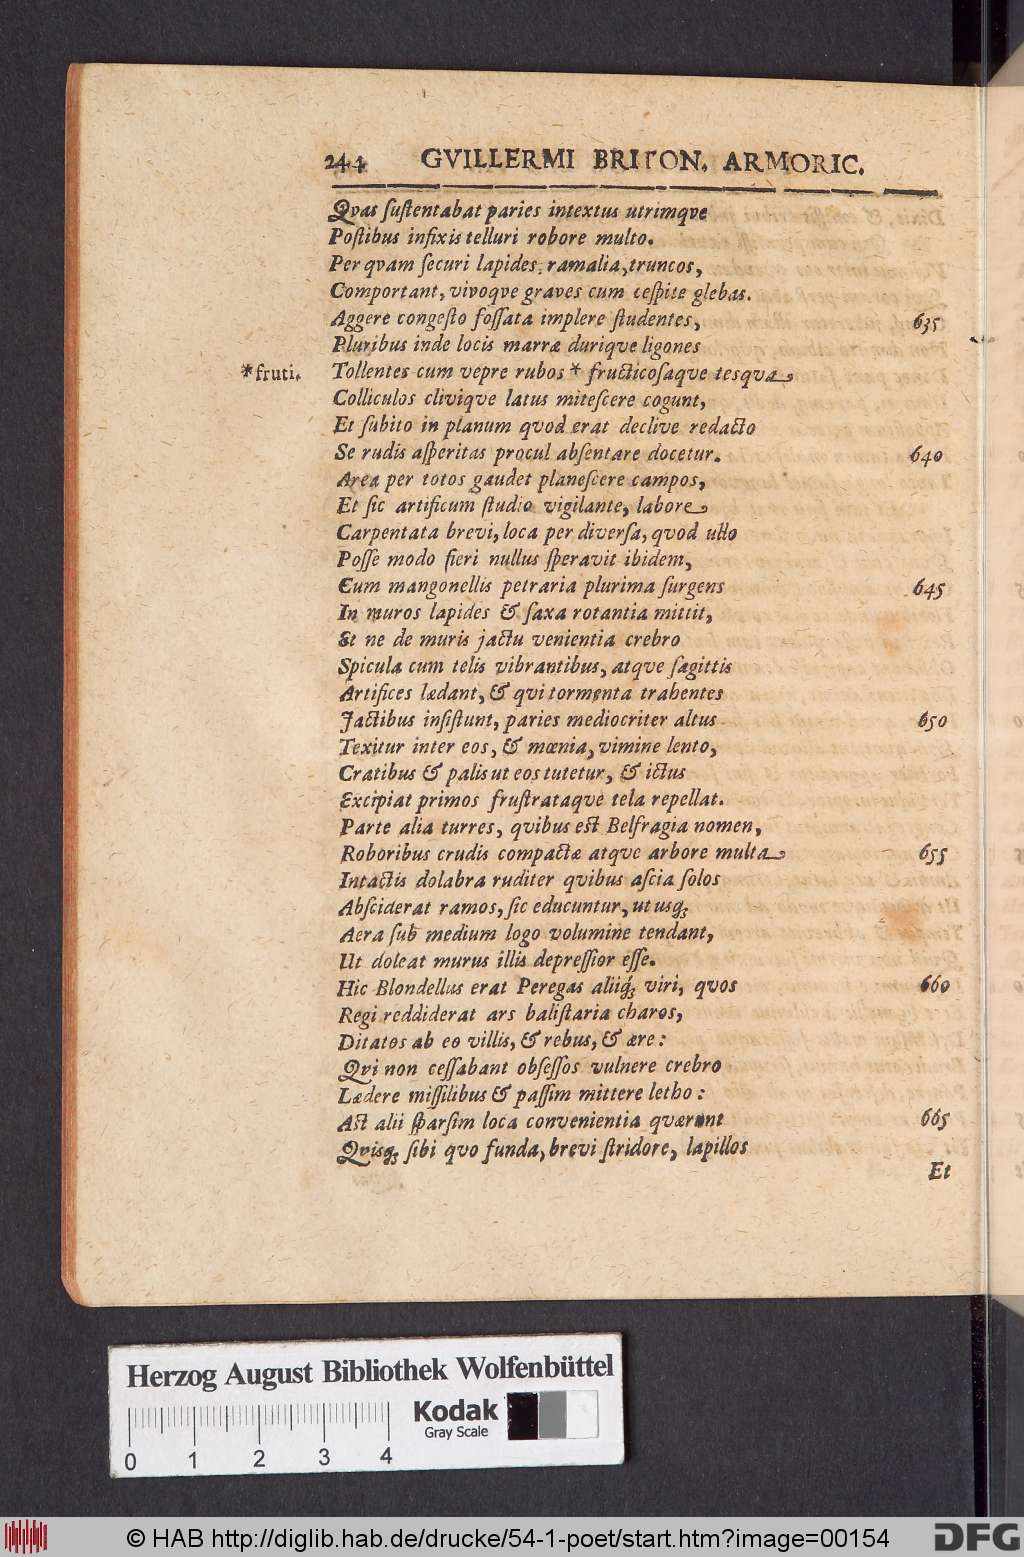 244 GVILLERMI BRITON. ARMORIC.
Qvas ſuſtentabat paries intextus utrimqve
Poſtibus infixis telluri robore multo.
Per qvam ſecuri lapides, ramalia, truncos,
Comportant, vivoqve graves cum ceſpite glebas.
Aggere congeſto foſſata implere ſtudentes, 635
Pluribus inde locis marræ duriqve ligones
*fruti. Tollentes cum vepre rubos * fructicoſaque tesqva
Colliculos clivique latus miteſcere cogunt,
Et ſubito in planum qvod erat declive redacto
Se rudis aſperitas procul abſentare docetur. 640
Area per totos gaudet planeſcere campos,
Et ſic artificum ſtudio vigilante, labore
Carpentata brevi, loca per diverſa, qvod ullo
Poſſe modo fieri nullus ſperavit ibidem,
Cum mangonellis petraria plurima ſurgens 645
In muros lapides & ſaxa rotantia mittit,
Et ne de muris jactu venientia crebro
Spicula cum telis vibrantibus, atqve ſagittis
Artifices lædant, & qvi tormenta trahentes
Jactibus inſiſtunt, paries mediocriter altus 650
Texitur inter eos, & mœnia, vimine lento,
Cratibus & palis ut eos tutetur, & ictus
Excipiat primos fruſtrataqve tela repellat.
Parte alia turres, qvibus eſt Belfragia nomen,
Roboribus crudis compactæ atqve arbore multa 655
Intactis dolabra ruditer qvibus aſcia ſolos
Abſciderat ramos, ſic educuntur, ut usqꝫ
Aera ſub medium logo volumine tendant,
Ut doleat murus illis depreſſior eſſe.
Hic Blondellus erat Peregas aliiq́ꝫ viri, qvos 660
Regi reddiderat ars baliſtaria charos,
Ditatos ab eo villis, & rebus, & ære:
Qvi non ceſſabant obſeſſos vulnere crebro
Lædere miſſilibus & paſſim mittere letho:
Aſt alii ſparſim loca convenientia qværunt 665
Qvisqꝫ ſibi qvo funda, brevi ſtridore, lapillos
Et
Herzog August Bibliothek Wolfenbüttel
Kodak
Gray Scale
0 1 2 3 4
© HAB http://diglib.hab.de/drucke/54-1-poet/start.htm?image=00154
DFG